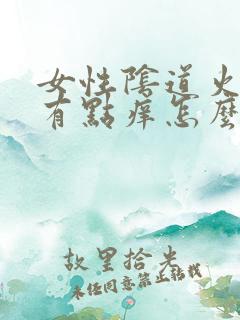 女性陰道火
有點痒怎麼
故里拾光
未经同意禁止转载